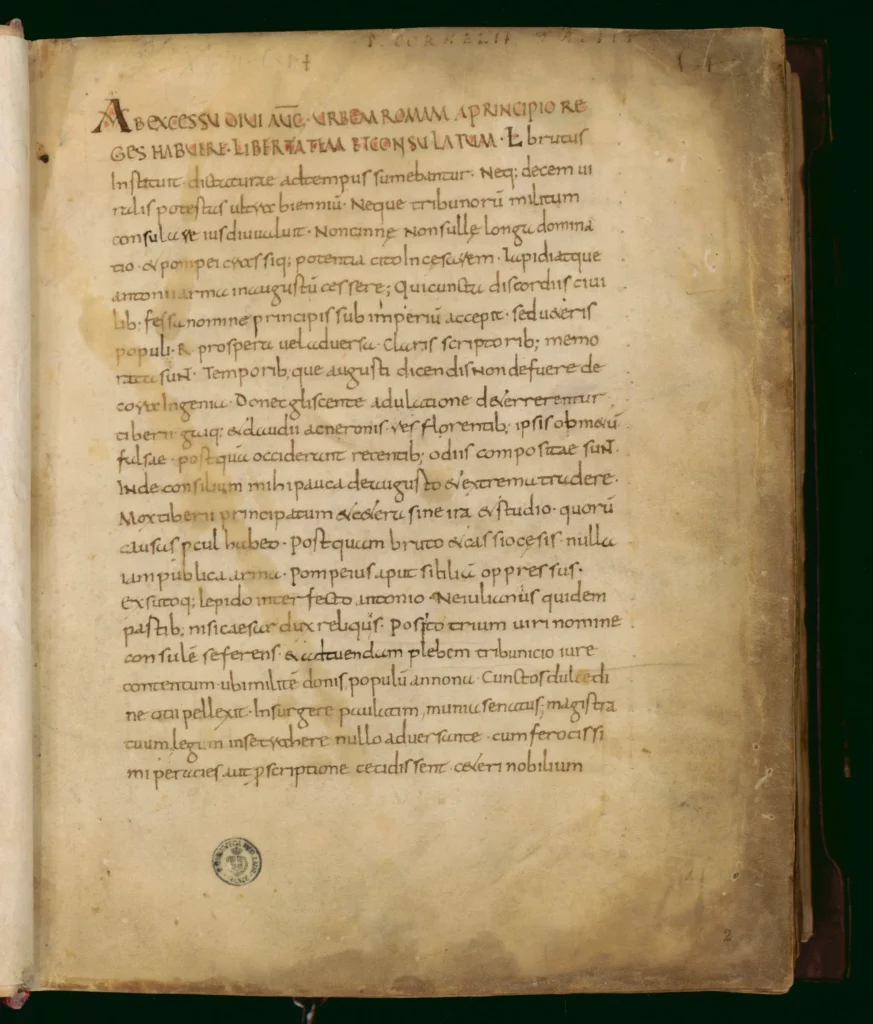 P. CORNELII
AB EXCESSU DIVI AUG̅· URBEM ROMAM A PRINCIPIO RE
GES HABUERE· LIBERTATEM ET CONSULATUM· L brutus
Instituit· dictaturae ad tempus sumebantur· Neq; decem ui
ralis potestas ultra bienniū· Neque tribunorū militum
consulare ius diu ualuit· Non cinnę Non sullę longa domina
tio· & pompei crassiq; potentia cito In cesarem· Lapidi atque
antonii arma in augustū cessere; Qui cuncta discordiis ciui
lib; fessa nomine principis sub imperiū accepit· sed ueteris
populi R prospera uel aduersa· Claris scriptorib; memo
rata suNt· Temporib; que augusti dicendis Non defuere de
cora Ingenia· Donec gliscente adulatione deterrerentur
tiberii gaiq; & claudii ac neronis· res florentib; ipsis ob metū
falsae· postquā occiderant recentib; odiis compositae suNt·
INde consilium mihi pauca de augusto & extrema tradere·
Mox tiberii principatum & cetera sine ira & studio· quorū
causas pcul habeo· Postquam bruto & cassio cesis· nulla
iam publica arma· Pompeius aput siciliā oppressus·
Exutoq; lepido interfecto antonio Ne iulianis quidem
partib; nisi caesar dux reliqus· Posito trium uiri nomine
consulē se ferens· & ad tuendam plebem tribunicio iure
contentum· ubi militē donis, populū annona· Cunctos dulcedi
ne otii pellexit· Insurgere paulatim, munia senatus; magistra
tuum, legum in se trahere nullo aduersante· cum ferocissi
mi per acies, aut pscriptione cecidissent· ceteri nobilium
2